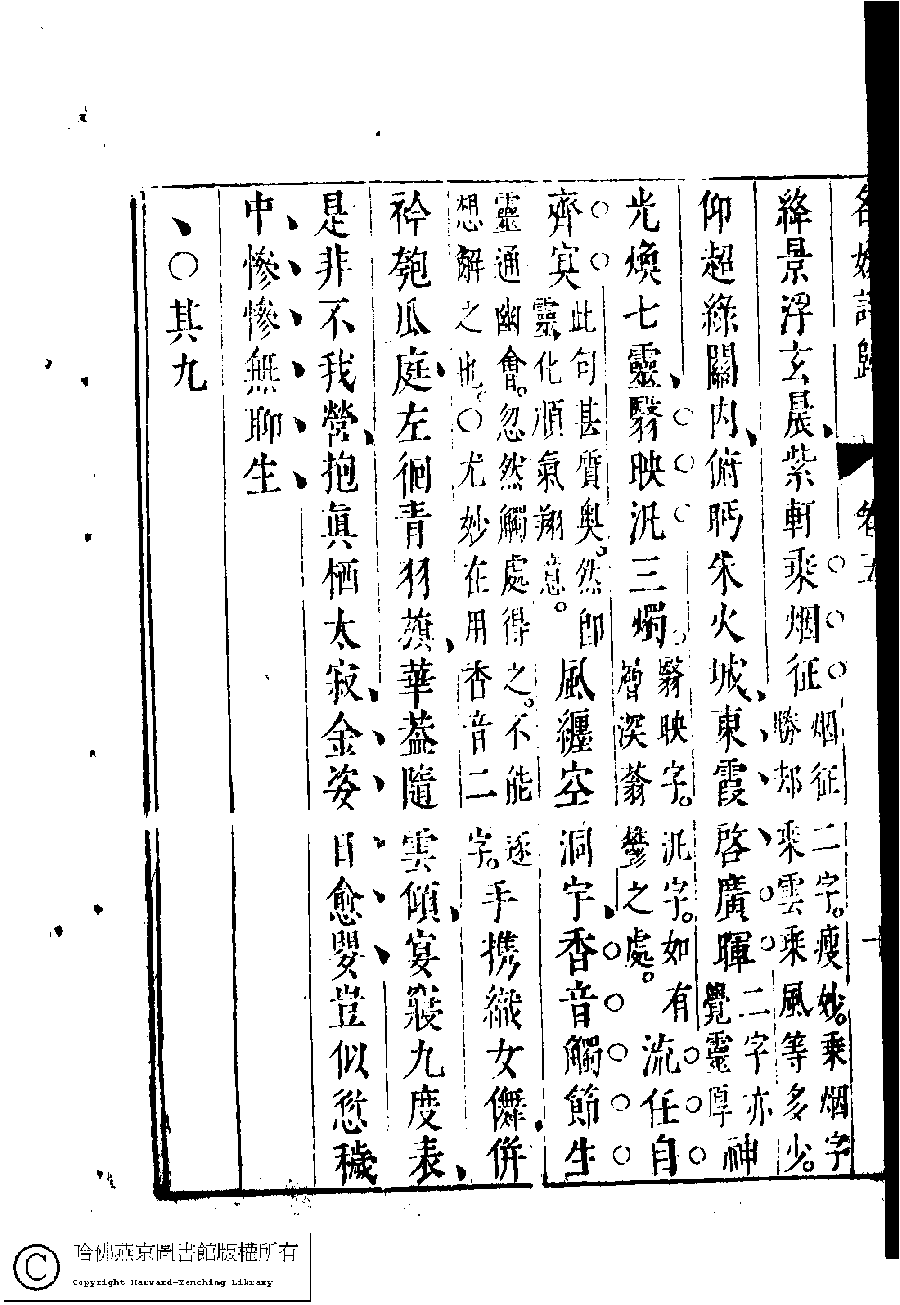 名媛詩歸 卷五
絳景浮玄晨紫軒乘烟征烟征二字。瘦妙。乘烟字
勝却乘雲乘風等多少。
仰超綠闕内俯眄朱火城東霞啓廣暉二字亦
覺靈厚神
光煥七靈翳映汎三燭翳映字。汎字。如有
簷深蓊鬱之處。流任自
齊寘此句甚質奧。然卽
靈化順氣翔意。風纏空洞宇香音觸節生
靈通幽會。忽然觸處得之。不能逐
想解之也。○尤妙在用香音二字。手携織女儛併
衿匏瓜庭左徊青羽旗華葢隨雲傾宴寢九度表
是非不我營抱眞栖太寂金姿日愈嬰豈似愆穢
中慘慘無聊生
、○其九
哈佛燕京圖書館版權所有
Copyright Harvard-Yenching Library